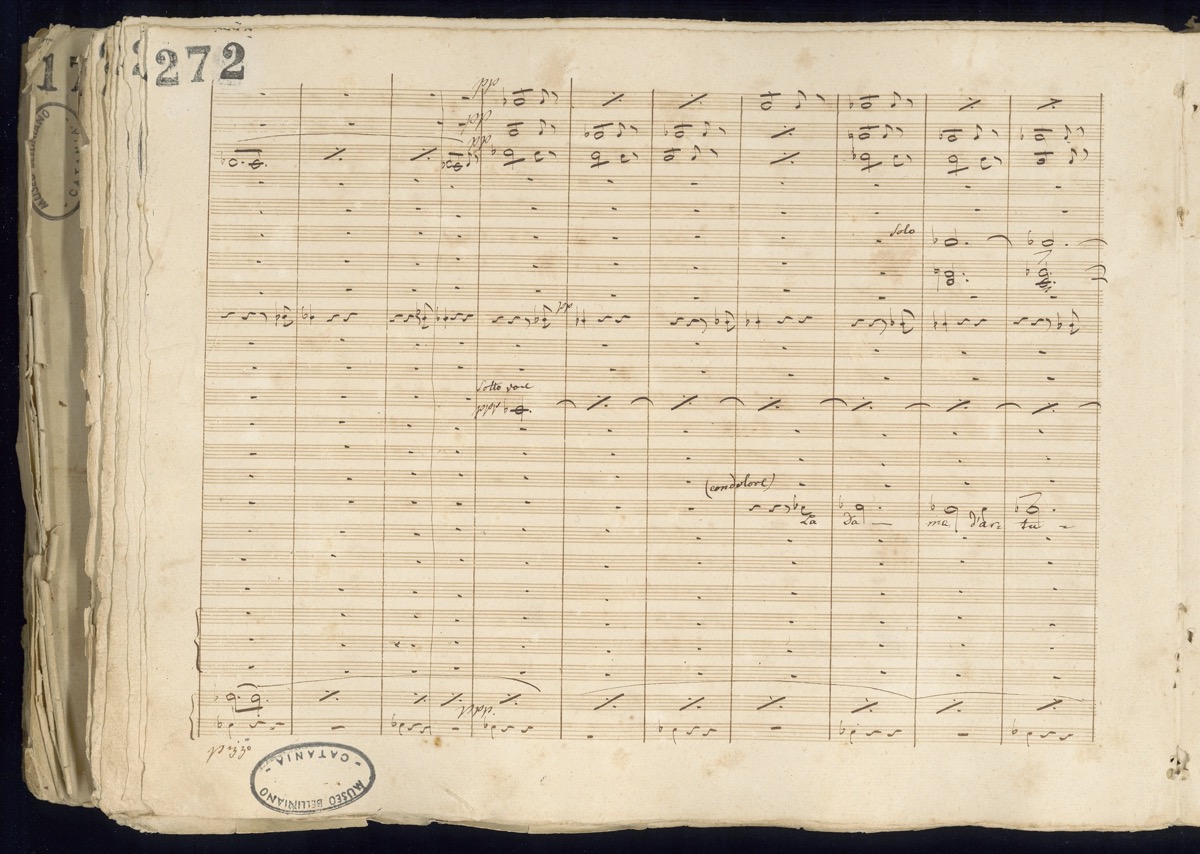 272
17
MUSEO BELLINIANO
- CATANIA -
Solo
Sotto voce
(con dolore)
La Da — ma d'Ar tu -
pizzic
MUSEO BELLINIANO
- CATANIA -